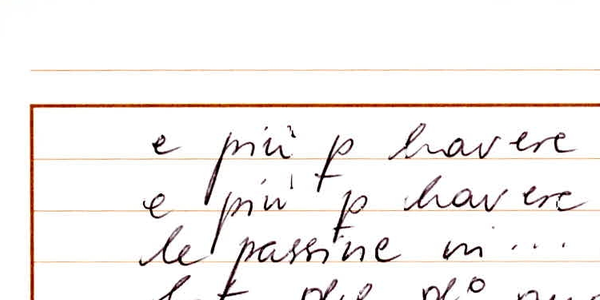 e più p havere
e più p havere
le passine in ...